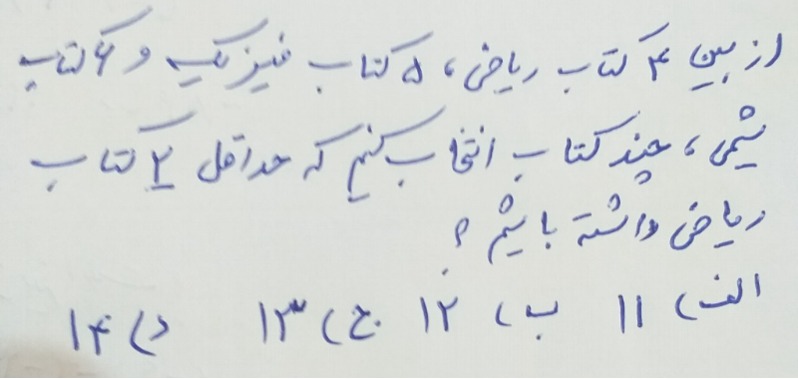 از بین ۴ کتاب ریاضی، ۵ کتاب فیزیک و ۶ کتاب
شیمی، چند کتاب انتخاب کنیم که حداقل ۲ کتاب
ریاضی داشته باشیم؟
الف) ۱۱ ب) ۱۲ ج) ۱۳ د) ۱۴